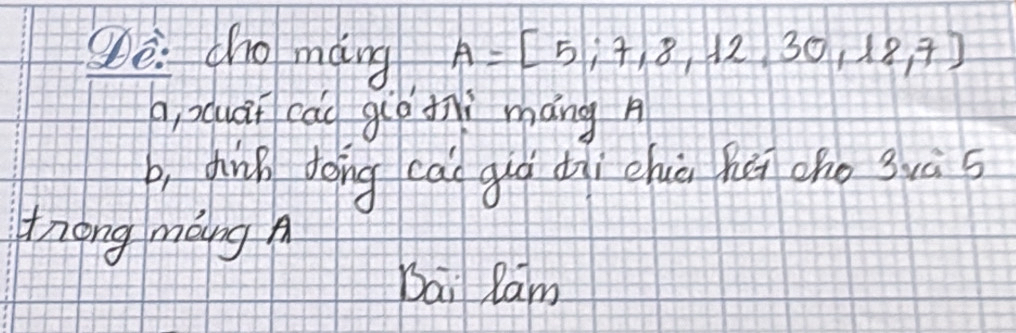 Đề: cho mảng A = [5; 7, 8, 12, 30, 18, 7]
a, xuất các giá trị mảng A
b, tính tổng các giá trị chia hết cho 3 và 5
trong mảng A
Bài làm